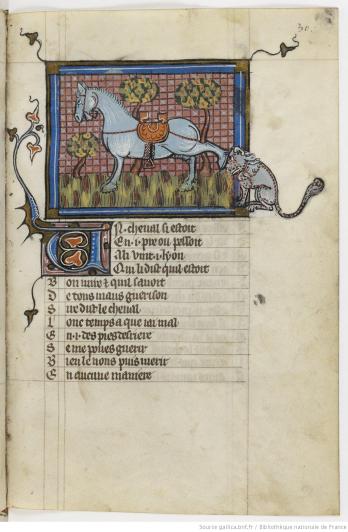 30.
Un cheval si estoit
En .i. pre ou pessoit
Ali vint .i. lyon
Qui li dist quil estoit
Bon mire & quil savoit
De tous maus guerison
Se dist le cheval
Lonc temps a que iai mal
En .i. des pies derriere
Se me poues guerir
Bien le uous puis merir
En aucune maniere
Source gallica.bnf.fr / Bibliothèque nationale de France